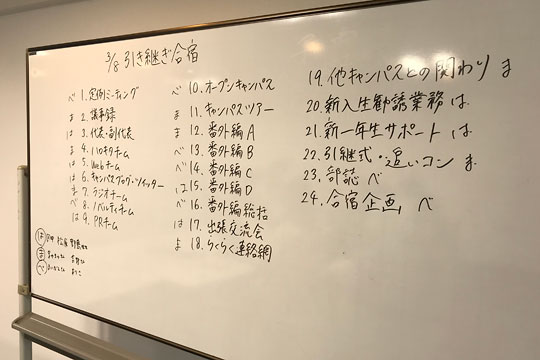 3/8 引き継ぎ合宿
べ 1. 定例ミーティング
ま 2. 議事録
は 3. 代表・副代表
ま 4. ハロキタチーム
は 5. Webチーム
は 6. キャンパスブログ・ツイッター
ま 7. ラジオチーム
べ 8. ノベルティチーム
は 9. PRチーム
べ 10. オープンキャンパス
ま 11. キャンパスツアー
ま 12. 番外編A
べ 13. 番外編B
べ 14. 番外編C
は 15. 番外編D
べ 16. 番外編総括
は 17. 出張交流会
よ 18. らくらく連絡網
19. 他キャンパスとの関わり ま
20. 新入生勧誘業務 は
21. 新一年生サポート は
22. 引継式・追いコン ま
23. 部誌 べ
24. 合宿企画 べ
は
ま
べ